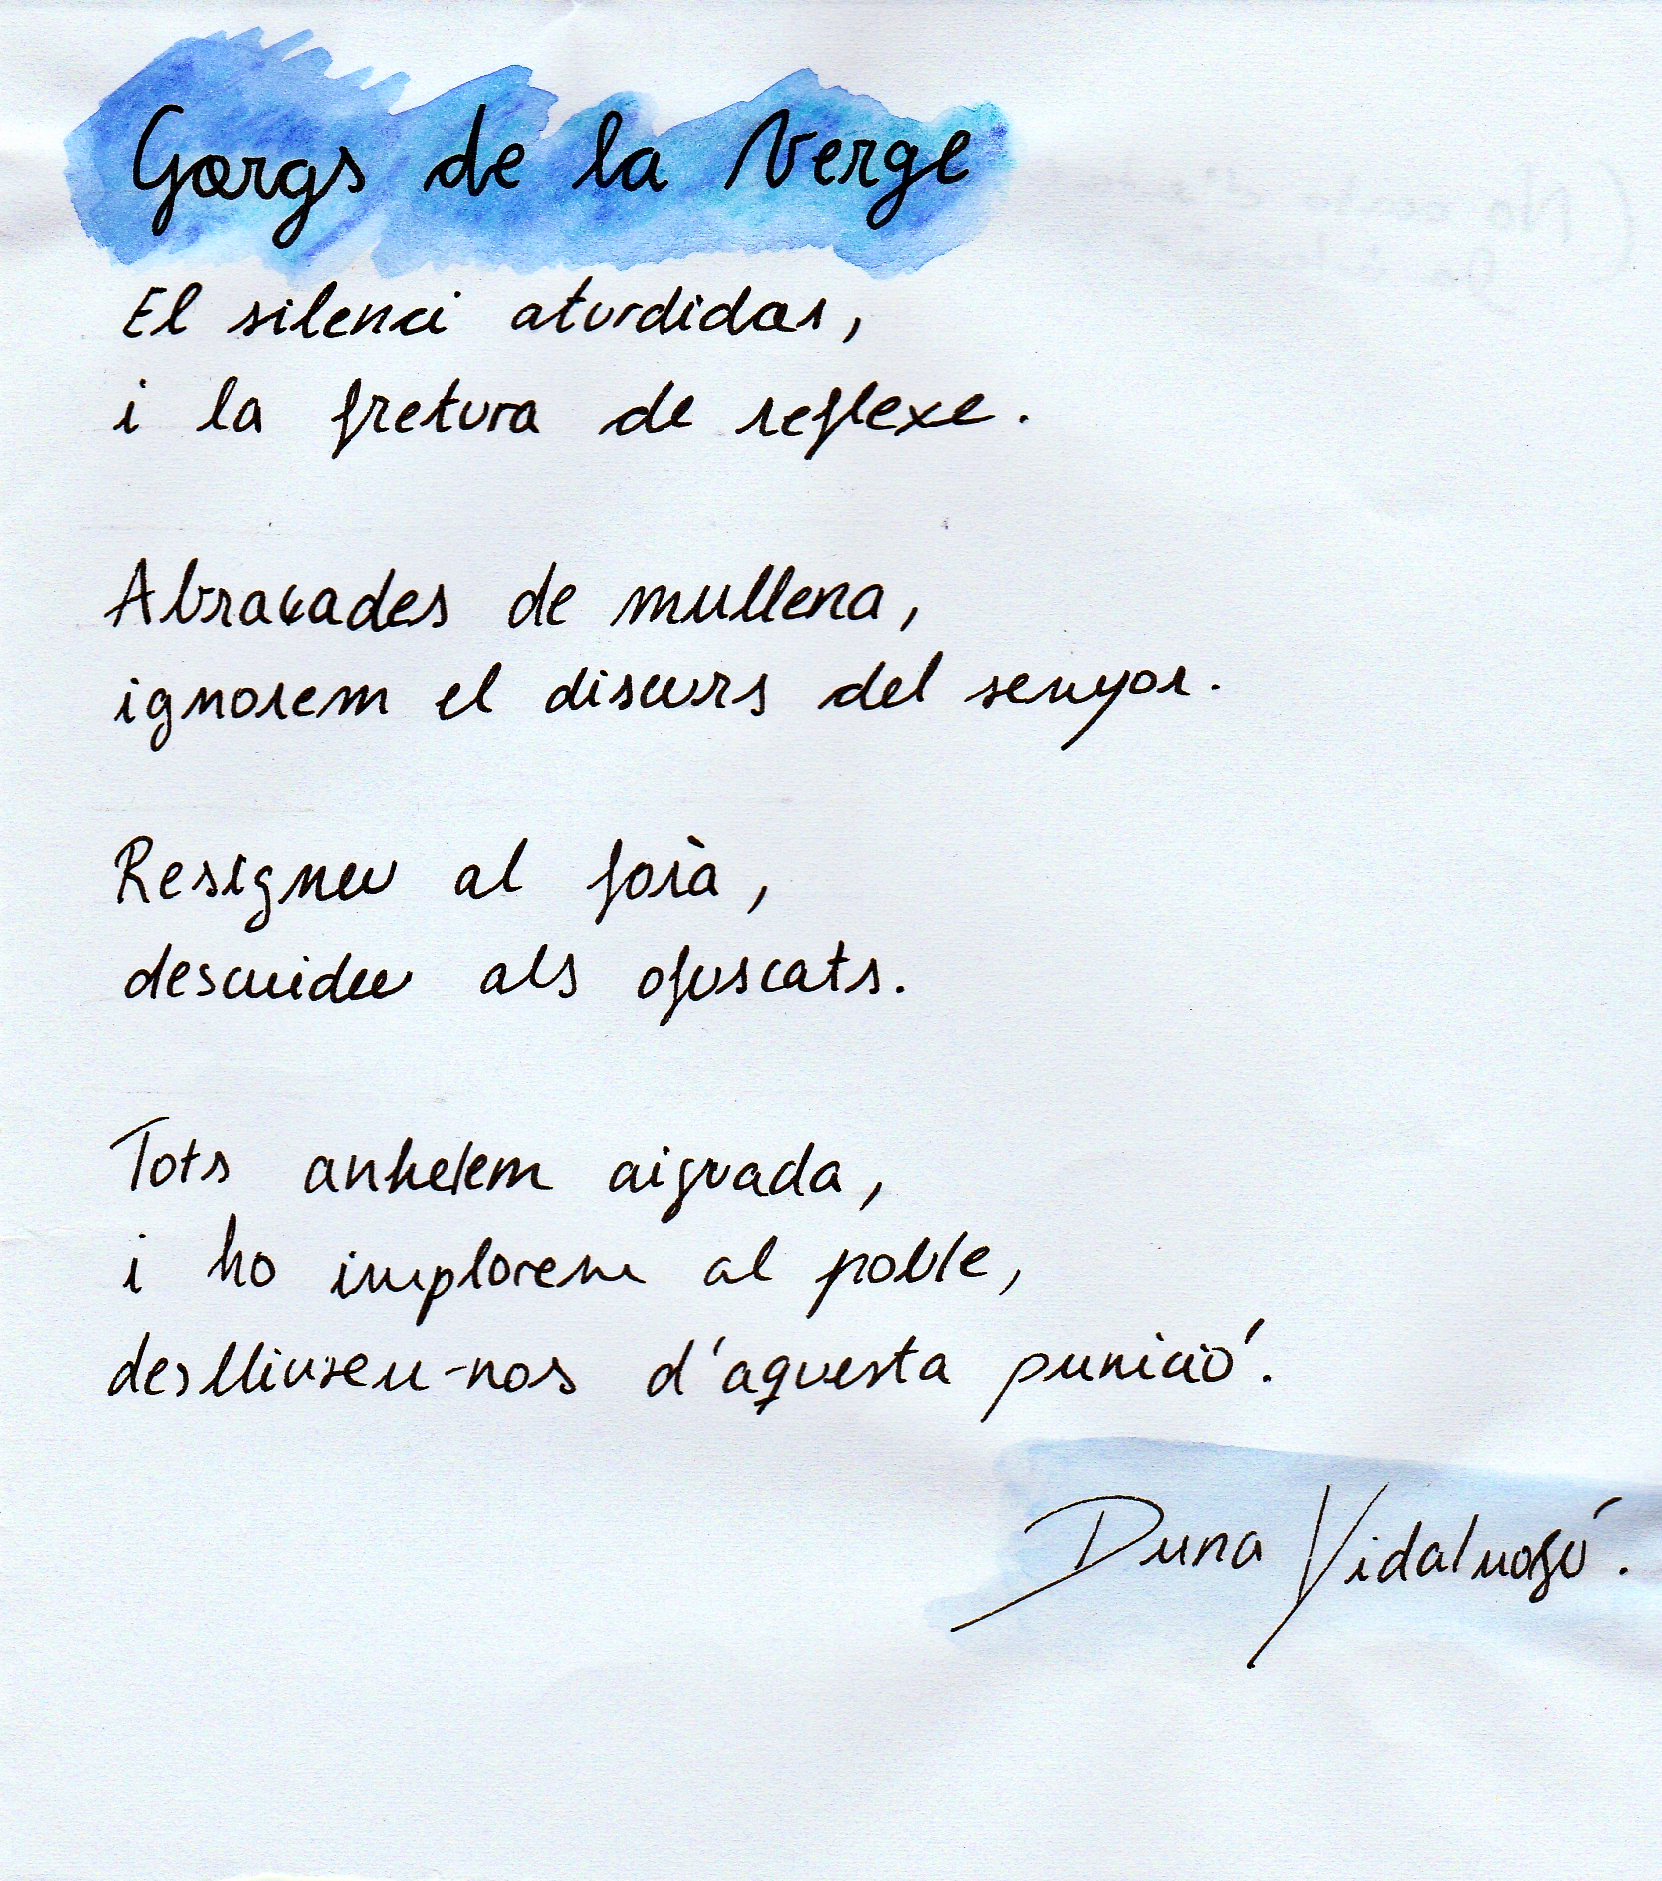 Gorgs de la Verge
El silenci aturdidor,
i la fretura de reflexe.
Abraçades de mullena,
ignorem el discurs del senyor.
Resigneu al forà,
descuideu als ofuscats.
Tots anhelem aiguada,
i ho implorem al poble,
deslliureu-nos d'aquesta punició.
Duna